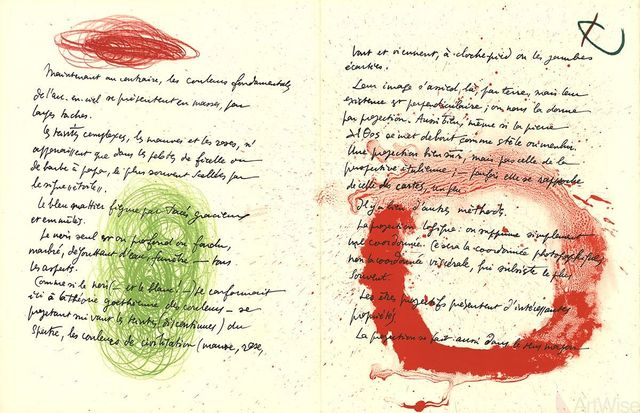 Maintenant au contraire, les couleurs fondamentales
de l'arc-en-ciel se présentent en masses, par
larges taches.
Les teintes complexes, les mauves et les roses, n'
apparaissent que dans les pelotes de ficelle ou
de barbe à papa, le plus souvent scellées par
le signe étoile.
Le bleu
et
Le noir seul est ou profond ou
marbré, dégouttant d'eau, fenêtre — tous
les aspects.
Comme si le noir (— et le blanc! —) se conformant
ici à la théorie goethéenne des couleurs — se
projetant suivant les teintes (discontinues) du
spectre, les couleurs de civilisation (mauve, rose,
vont et viennent, à cloche-pied ou les jambes
écartées.
Leur image s'assied, là, par terre, mais leur
existence est perpendiculaire; on nous la donne
par projection. Aussi bien, même si la pierre
se met debout comme stèle ou menhir.
Une projection bien sûr, mais pas celle de la
perspective italienne; — parfois elle se rapproche
de celle des cartes, un peu.
Il y a bien d'autres méthodes.
La projection logique: on supprime simplement
une coordonnée. Ce sera la coordonnée photographique,
non la coordonnée viscérale, qui subsiste le plus
souvent.
Les êtres projectifs présentent d'intéressantes
propriétés.
La projection se fait aussi dans le sens
ArtWise